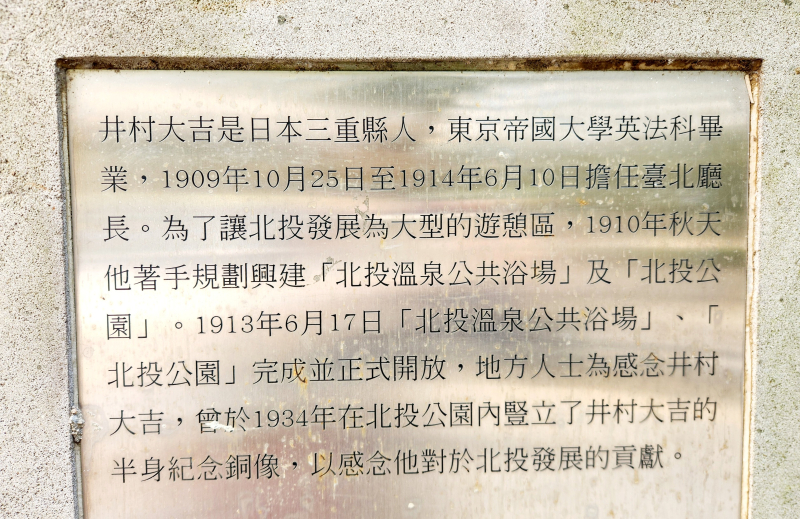 井村大吉是日本三重縣人，東京帝國大學英法科畢
業，1909年10月25日至1914年6月10日擔任臺北廳
長。為了讓北投發展為大型的遊憩區，1910年秋天
他著手規劃興建「北投溫泉公共浴場」及「北投公
園」。1913年6月17日「北投溫泉公共浴場」、「
北投公園」完成並正式開放，地方人士為感念井村
大吉，曾於1934年在北投公園內豎立了井村大吉的
半身紀念銅像，以感念他對於北投發展的貢獻。